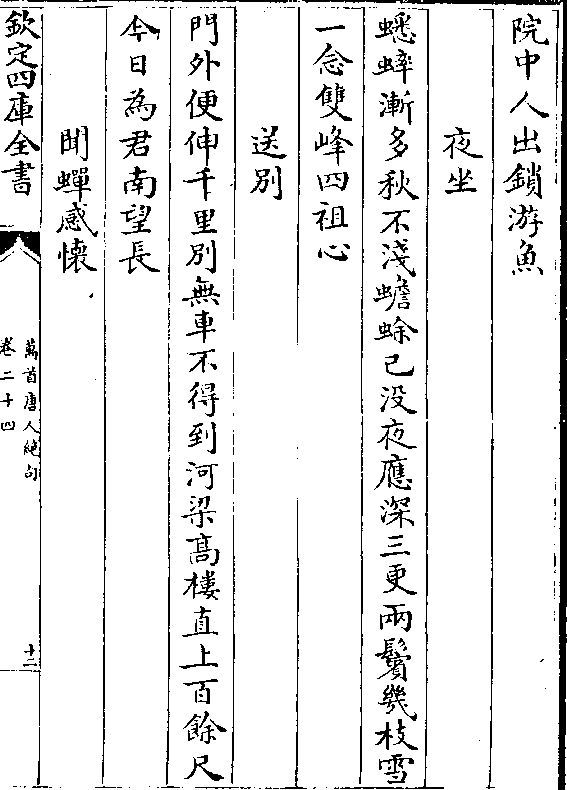 院中人出鎖游魚
夜坐
蟋蟀漸多秋不淺蟾蜍已没夜應深三更兩鬢幾枝雪
一念雙峰四祖心
送別
門外便伸千里別無車不得到河梁髙樓直上百餘尺
今日為君南望長
聞蟬感懐
欽定四庫全書
萬首唐人絶句
卷二十四
十二